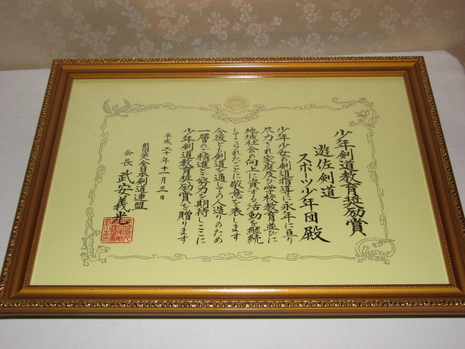 少年剣道教育奨励賞
遊佐剣道
スポーツ少年団殿
少年少女の剣道指導に永年に亘り
尽力され家庭及び学校教育並びに
地域社会の向上に資する活動を継続
してこられたことに敬意を表します
今後とも剣道を通しての人造りのため
一層のご精進と努力を期待しここに
少年剣道教育奨励賞を贈ります
平成二十年十一月三日
財団法人全日本剣道連盟
会長 武安義光